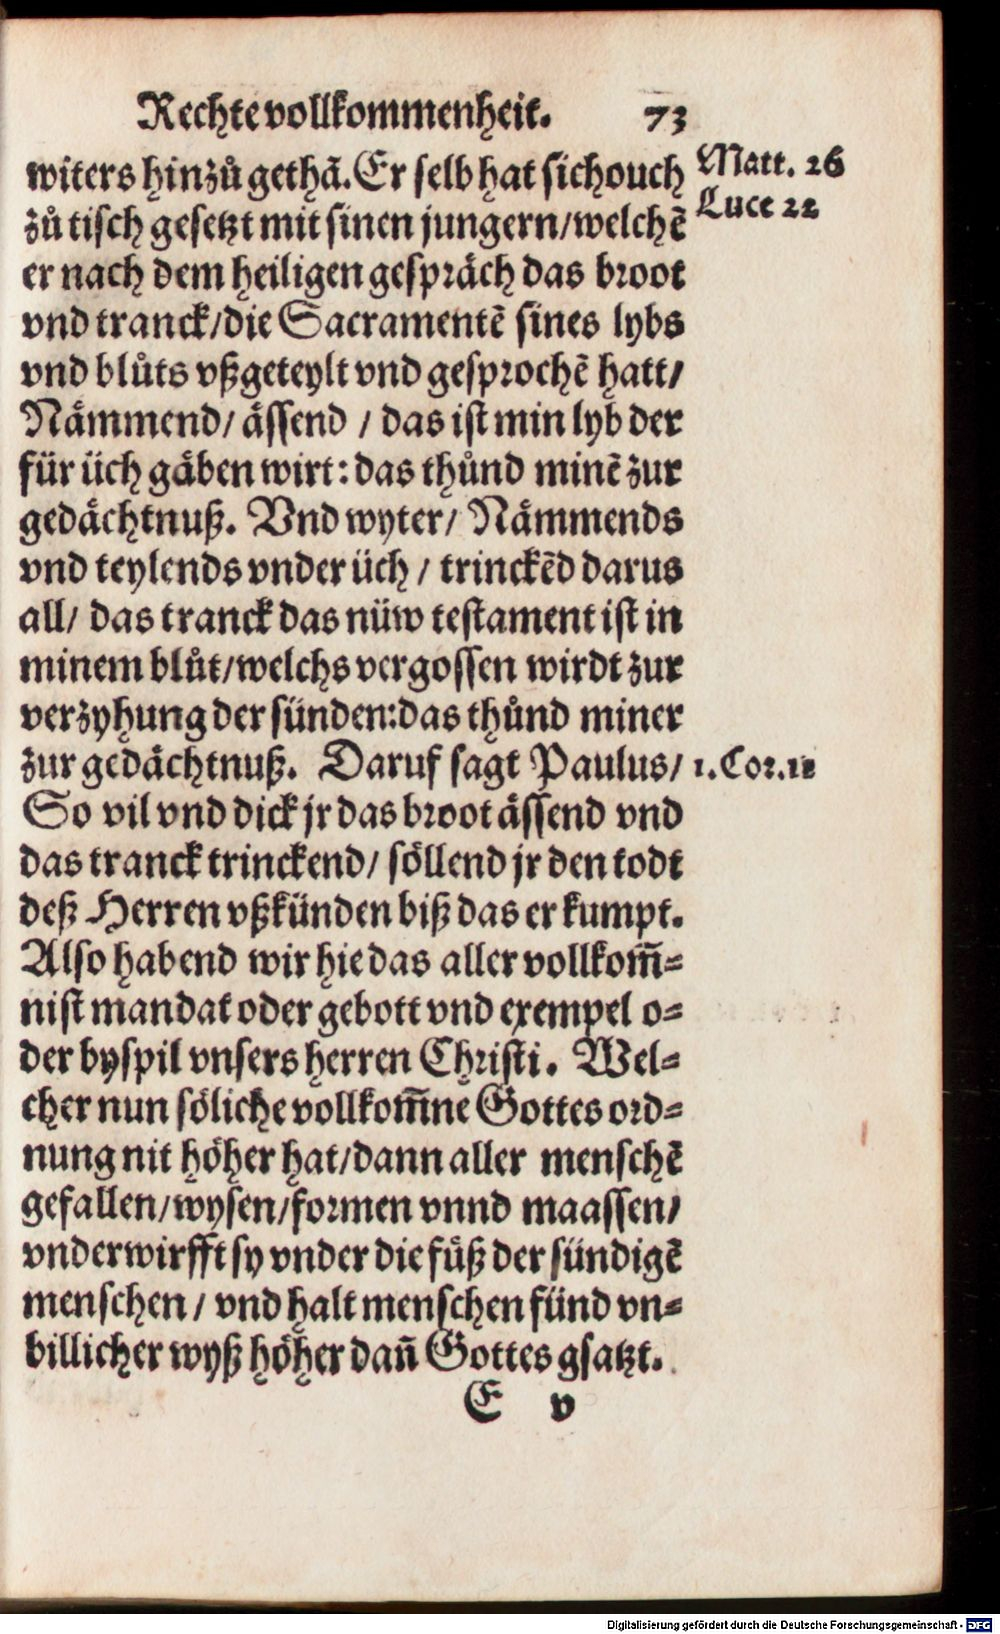 Rechte vollkommenheit. 73
witers hinzů gethā. Er selb hat sich ouch
Matt. 26
zů tisch gesetzt mit sinen jungern/ welchē
Luce 22
er nach dem heiligen gespräch das broot
vnd tranck/ die Sacramentē sines lybs
vnd blůts vßgeteylt vnd gesprochē hatt/
Nämmend/ ässend / das ist min lyb der
für üch gäben wirt: das thůnd minē zur
gedächtnuß. Vnd wyter/ Nämmends
vnd teylends vnder üch / trinckēd darus
all/ das tranck das nüw testament ist in
minem blůt/ welchs vergossen wirdt zur
verzyhung der sünden: das thůnd miner
zur gedächtnuß. Daruf sagt Paulus/
1. Cor. 11
So vil vnd dick jr das broot ässend vnd
das tranck trinckend/ söllend jr den todt
deß Herren vßkünden biß das er kumpt.
Also habend wir hie das aller vollkom̄=
nist mandat oder gebott vnd exempel o=
der byspil vnsers herren Christi. Wel=
cher nun söliche vollkom̄ne Gottes ord=
nung nit höher hat/ dann aller menschē
gefallen/ wysen/ formen vnnd maassen/
vnderwirfft sy vnder die füß der sündigē
menschen / vnd halt menschen fünd vn=
billicher wyß höher dan̄ Gottes gsatzt.
E v
Digitalisierung gefördert durch die Deutsche Forschungsgemeinschaft - DFG